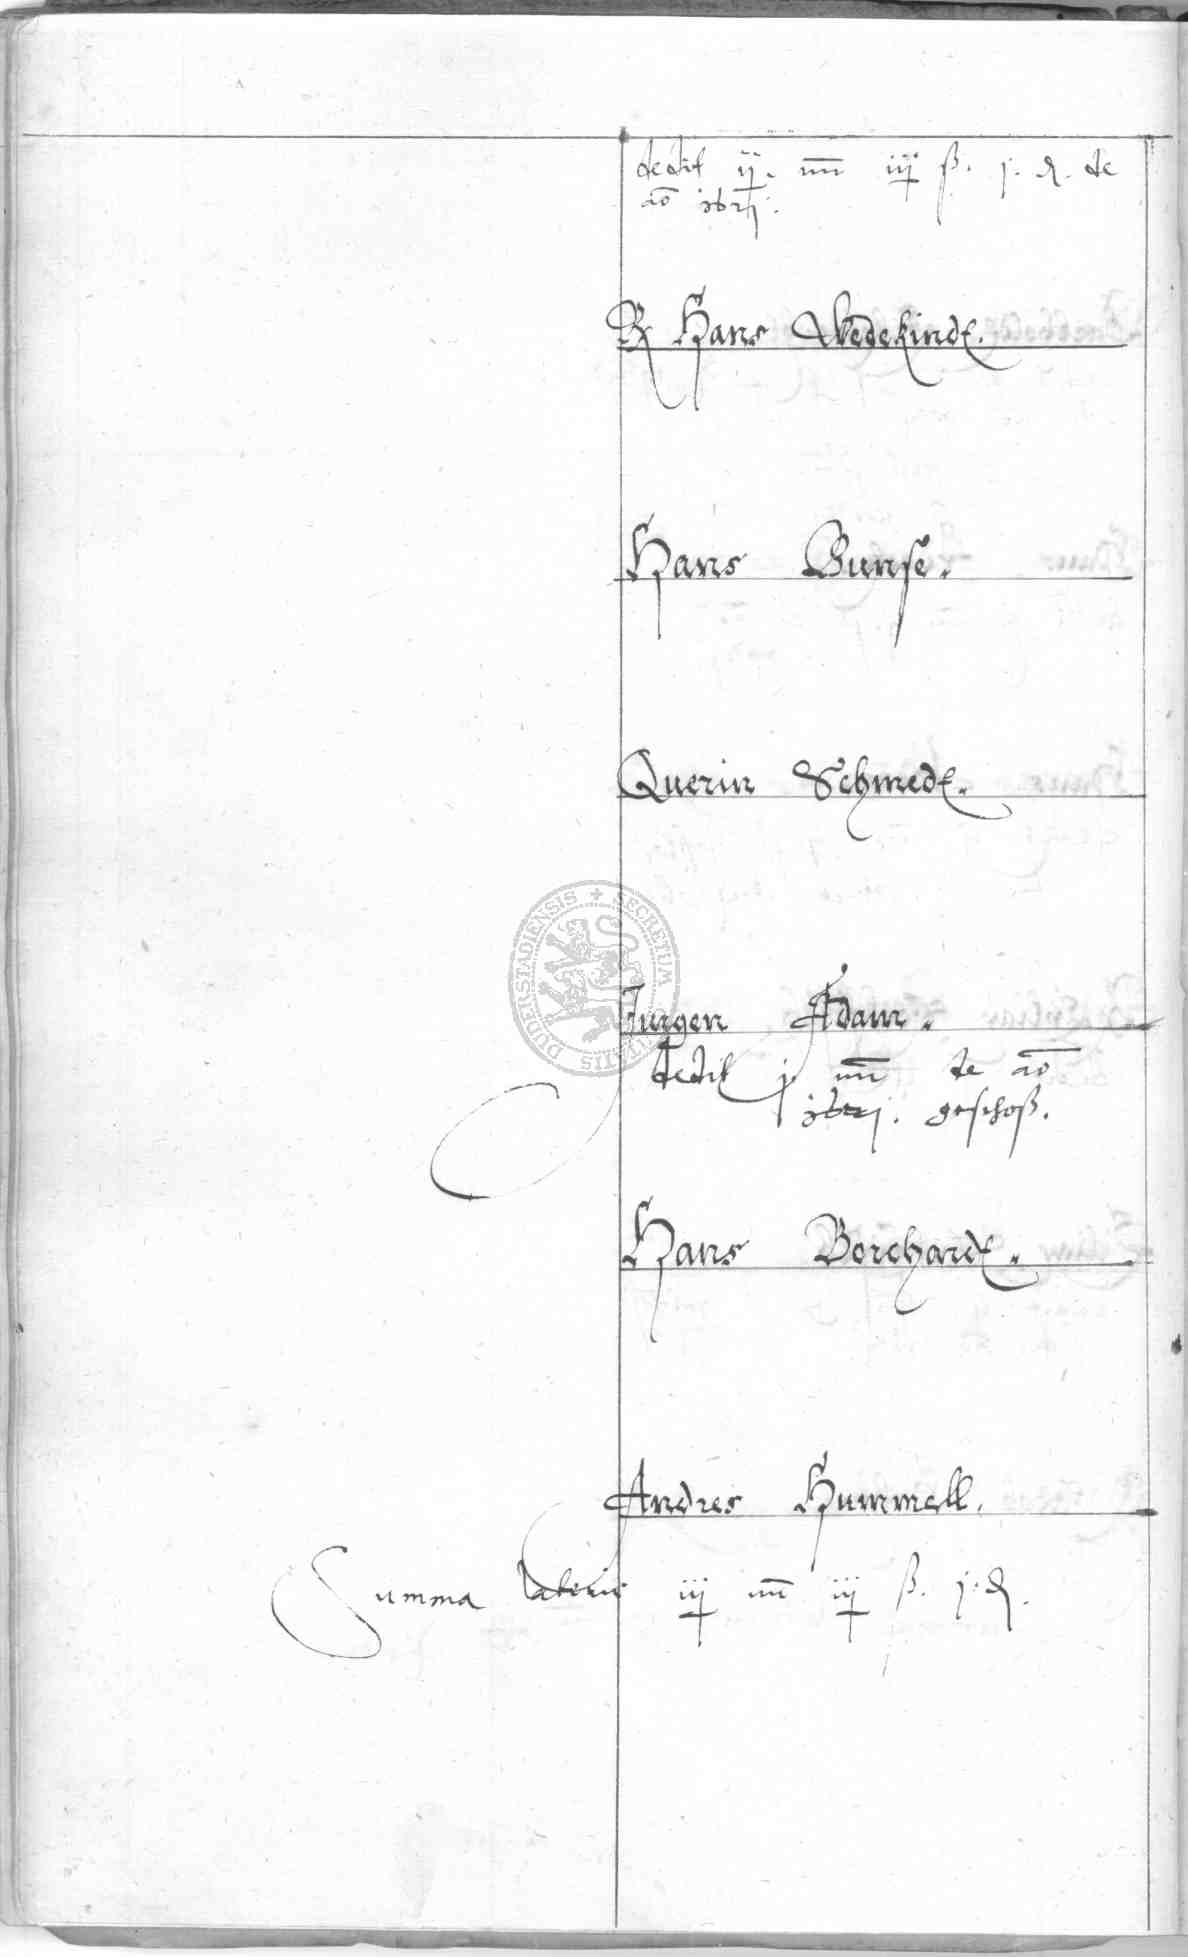 dedit ij. m̃ iij ß. j. ₰. de
ao 1621.
Hans Wedekindt.
Hans Bunse.
Querin Schmedt.
SECRETUM DUDERSTADIENSIS
Jurgen Adam.
dedit j m̃ de ao
1621. geschoß.
Hans Borchardt.
Andres Hummell.
Summa lateris iij m̃ iij ß. j. ₰.